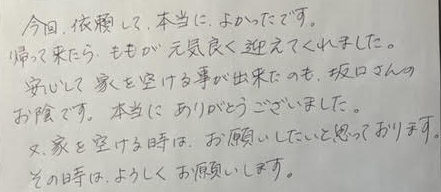 今回、依頼して、本当に、よかったです。
帰って来たら、ももが元気良く迎えてくれました。
安心して家を空ける事が出来たのも、坂口さんの
お陰です。本当にありがとうございました。
又、家を空ける時は、お願いしたいと思っております。
その時は、よろしくお願いします。